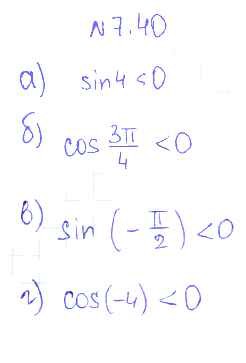 N7.40
а) sin4 < 0
б) cos 3π/4 < 0
в) sin (-π/2) < 0
г) cos(-4) < 0